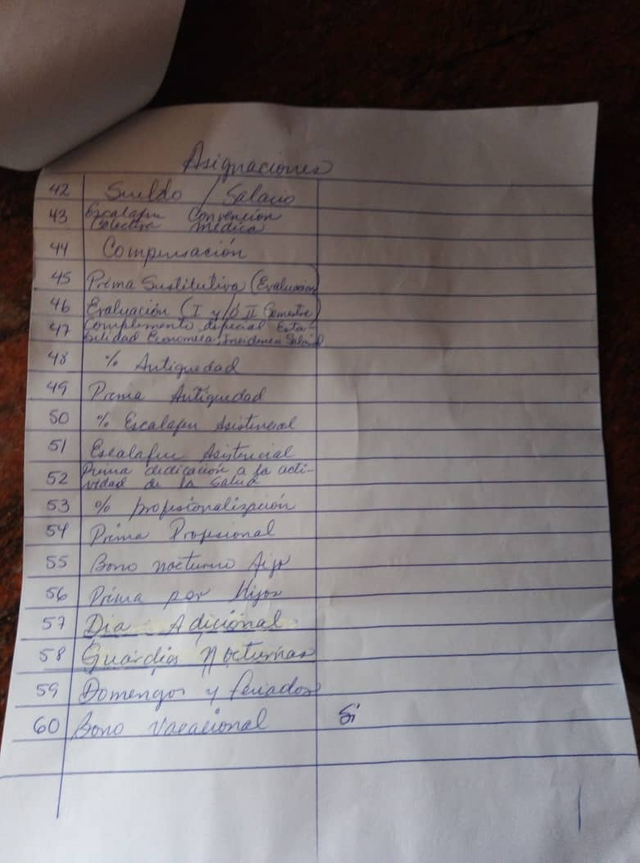 Asignaciones
42 Sueldo / Salario
43 Escalafon Convencion
Colectiva Médica
44 Compensación
45 Prima Sustitutiva (Evaluacion)
46 Evaluación (I y/o II Semestre)
47 Complemento especial Esta-
bilidad Economica Incidencia Salarial
48 % Antiguedad
49 Prima Antiguedad
50 % Escalafon Asistencial
51 Escalafon Asistencial
52 Prima dedicación a la acti-
vidad de la Salud
53 % profesionalización
54 Prima Profesional
55 Bono nocturno Fijo
56 Prima por Hijos
57 Dia Adicional
58 Guardias Nocturnas
59 Domingos y feriados
60 Bono Vacacional Si